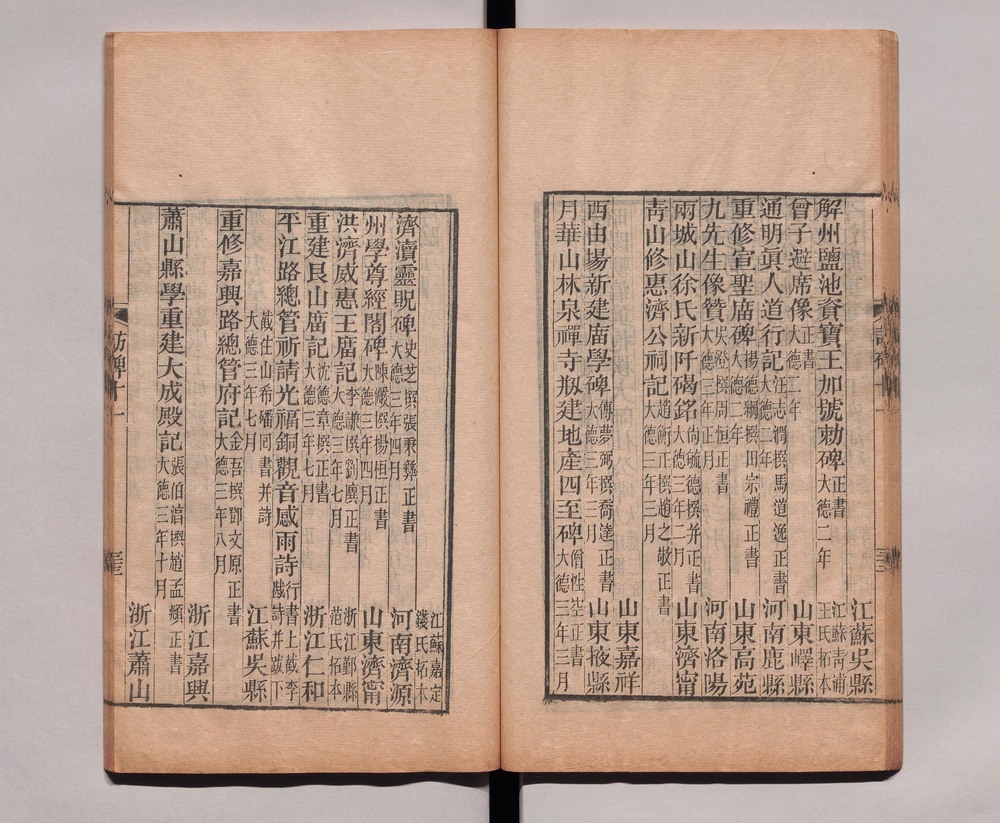 江蘇吳縣
解州鹽池資寶王加號勅碑正書大德二年
江蘇青浦王氏拓本
曾子避席像正書大德二年
山東嶧縣
通明眞人道行記汪志潤撰馬道逸正書大德二年
河南鹿縣
重修宣聖廟碑楊德綱撰田宗禮正書大德二年
山東高苑
九先生像贊吳澄撰周恒正書大德三年正月
河南洛陽
兩城山徐氏新阡碣銘尙敏德撰并正書大德三年二月
山東濟甯
靑山修惠濟公祠記趙衡正撰趙之敬正書大德三年三月
山東嘉祥
西由場新建廟學碑傅夢弼撰喬達正書大德三年三月
山東掖縣
月華山林泉禪寺剏建地產四至碑僧性空正書大德三年三月
江蘇嘉定錢氏拓本
濟瀆靈貺碑史芝撰張秉彝正書大德三年四月
河南濟源
州學尊經閣碑陳儼撰楊恒正書大德三年四月
山東濟甯
洪濟威惠王廟記李謙撰劉賡正書大德三年七月
浙江鄞縣范氏拓本
重建艮山廟記沈德章撰正書大德三年七月
浙江仁和
平江路總管祈請光福銅觀音感雨詩行書上截李賤詩并跋下
截住山希磻同書并詩大德三年七月
江蘇吳縣
重修嘉興路總管府記金吾撰鄧文原正書大德三年八月
浙江嘉興
蕭山縣學重建大成殿記張伯淯撰趙孟頫正書大德三年十月
浙江蕭山
訪碑十一